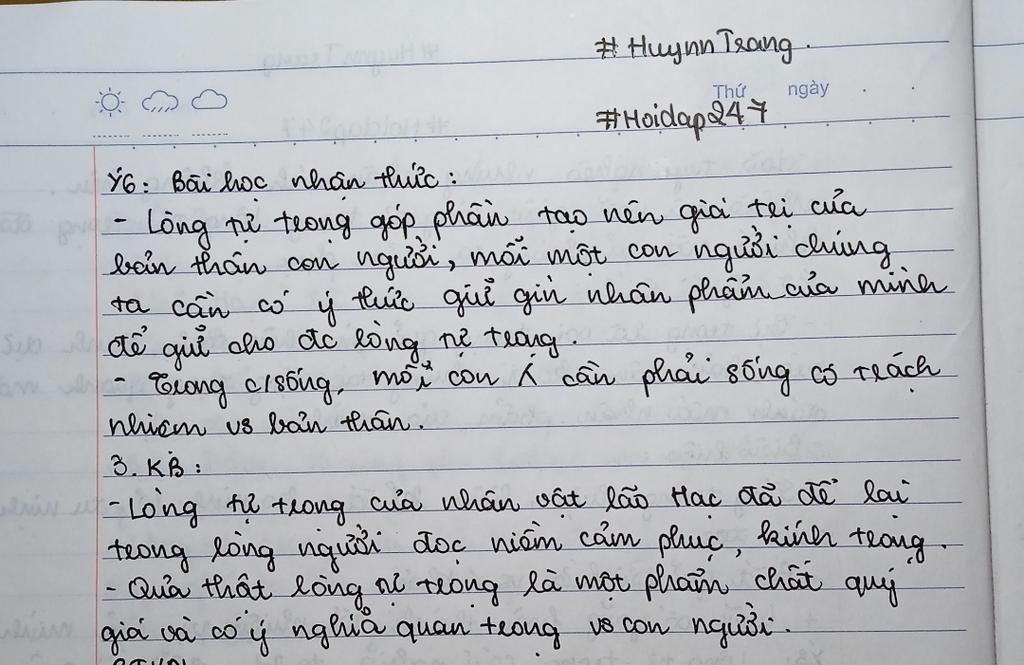 # HuynnTrang.
Thứ ngày
#Hoidap247
Ý6: Bài học nhận thức:
- Lòng tự trọng góp phần tạo nên giá trị của
bản thân con người, mỗi một con người chúng
ta cần có ý thức giữ gìn nhân phẩm của mình
để giữ cho đc lòng tự trọng.
- Trong c/sống, mỗi con ng cần phải sống có trách
nhiệm vs bản thân.
3. KB:
- Lòng tự trọng của nhân vật lão Hạc đã để lại
trong lòng người đọc niềm cảm phục, kính trọng.
- Quả thật lòng tự trọng là một phẩm chất quý
giá và có ý nghĩa quan trọng vs con người.